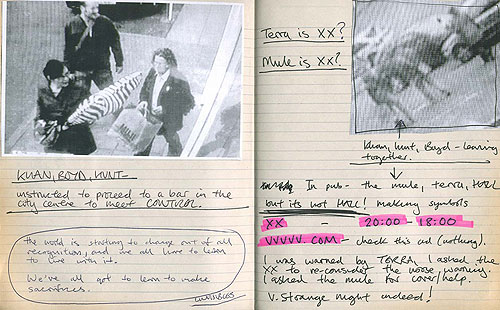 KHAN, BOYD, HUNT
instructed to proceed to a bar in the
city centre to meet CONTROL.
The world is starting to change out of all
recognition, and we all have to learn
to live with it.
We've all got to learn to make
sacrifices.
Terra is XX?
Mule is XX?
Khan, Hunt, Boyd - leaving
together.
In pub - the mule, terra, HAZL
but its not HAZL! making symbols
XX - 20:00 - 18:00
VVVVV.COM - check this out (nothing).
I was warned by TERRA, I asked the
XX to re-consider the warning.
I asked the mule for cover/help.
V. Strange night indeed!